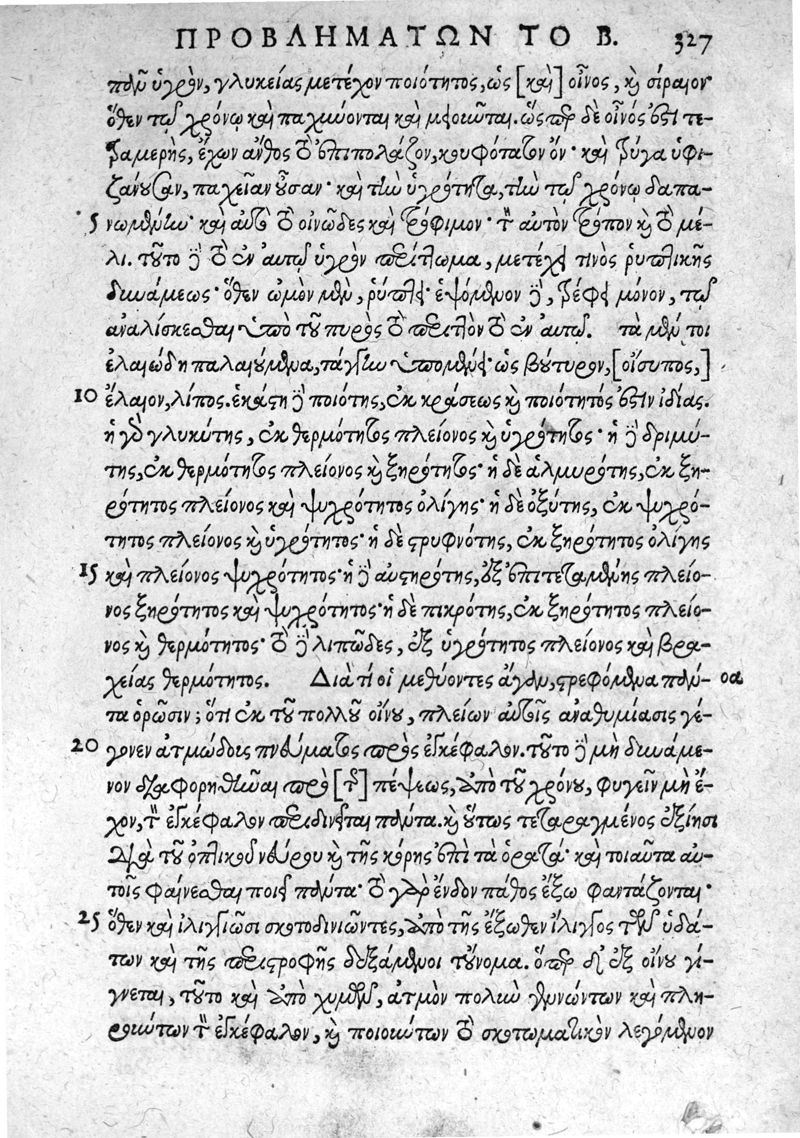 ΠΡΟΒΛΗΜΑΤΩΝ ΤΟ Β. 327
πολὺ ὑγρὸν, γλυκείας μετέχον ποιότητος, ὡς [καὶ] οἶνος, καὶ σίραιον
ὅθεν τῷ χρόνῳ καὶ παχύνονται καὶ μειοῦται. ὥσπερ δὲ οἶνός ἐστι τε-
τραμερὴς, ἔχων ἄνθος τὸ ἐπιπολάζον, κουφότατον ὄν· καὶ τρύγα ὑφι-
ζάνουσαν, παχεῖαν οὖσαν· καὶ τὴν ὑγρότητα, τὴν τῷ χρόνῳ δαπα-
5 νωμένην· καὶ αὐτὸ τὸ οἰνῶδες καὶ τρόφιμον· τὸν αὐτὸν τρόπον καὶ τὸ μέ-
λι. τοῦτο δὲ τὸ ἐν αὐτῷ ὑγρὸν περίττωμα, μετέχει τινὸς ῥυπτικῆς
δυνάμεως· ὅθεν ὠμὸν μὲν, ῥύπτει· ἑψόμενον δὲ, τρέφει μόνον, τῷ
ἀναλίσκεσθαι ὑπὸ τοῦ πυρὸς τὸ περιττὸν τὸ ἐν αὐτῷ. τὰ μέν τοι
ἐλαιώδη παλαιούμενα, τάγγην ὑπομένει· ὡς βούτυρον, [οἴσυπος,]
10 ἔλαιον, λίπος. ἑκάστη δὲ ποιότης, ἐκ κράσεως καὶ ποιότητός ἐστιν ἰδίας.
ἡ γὰρ γλυκύτης, ἐκ θερμότητος πλείονος καὶ ὑγρότητος· ἡ δὲ δριμύ-
της, ἐκ θερμότητος πλείονος καὶ ξηρότητος· ἡ δὲ ἁλμυρότης, ἐκ ξη-
ρότητος πλείονος καὶ ψυχρότητος ὀλίγης· ἡ δὲ ὀξύτης, ἐκ ψυχρό-
τητος πλείονος καὶ ὑγρότητος· ἡ δὲ στρυφνότης, ἐκ ξηρότητος ὀλίγης
15 καὶ πλείονος ψυχρότητος· ἡ δὲ αὐστηρότης, ἐξ ἐπιτεταμένης πλείο-
νος ξηρότητος καὶ ψυχρότητος· ἡ δὲ πικρότης, ἐκ ξηρότητος πλείο-
νος καὶ θερμότητος· τὸ δὲ λιπῶδες, ἐξ ὑγρότητος πλείονος καὶ βρα-
χείας θερμότητος. Διὰ τί οἱ μεθύοντες ἄγαν, στρεφόμενα πάν- οα
τα ὁρῶσιν; ὅτι ἐκ τοῦ πολλοῦ οἴνου, πλείων αὐτοῖς ἀναθυμίασις γέ-
20 γονεν ἀτμώδοις πνεύματος πρὸς ἐγκέφαλον. τοῦτο δὲ μὴ δυνάμε-
νον διαφορηθῆναι πρὸ [τῆς] πέψεως, ἀπὸ τοῦ χρόνου, φυγεῖν μὴ ἔ-
χον, τὸν ἐγκέφαλον περιδινεῖται πάντα. καὶ οὕτως τεταραγμένος ἐξίησι
διὰ τοῦ ὀπτικοῦ νεύρου καὶ τῆς κόρης ἐπὶ τὰ ὁρατά· καὶ τοιαῦτα αὐ-
τοῖς φαίνεσθαι ποιεῖ πάντα· τὸ γὰρ ἔνδον πάθος ἔξω φαντάζονται·
25 ὅθεν καὶ ἰλιγγιῶσι σκοτοδινιῶντες, ἀπὸ τῆς ἔξωθεν ἴλιγγος τῶν ὑδά-
των καὶ τῆς περιστροφῆς δεξάμενοι τοὔνομα. ὅπερ δὲ ἐξ οἴνου γί-
γνεται, τοῦτο καὶ ἀπὸ χυμῶν, ἀτμὸν πολὺν γεννώντων καὶ πλη-
ρούντων τὸν ἐγκέφαλον, καὶ ποιούντων τὸ σκοτωματικὸν λεγόμενον